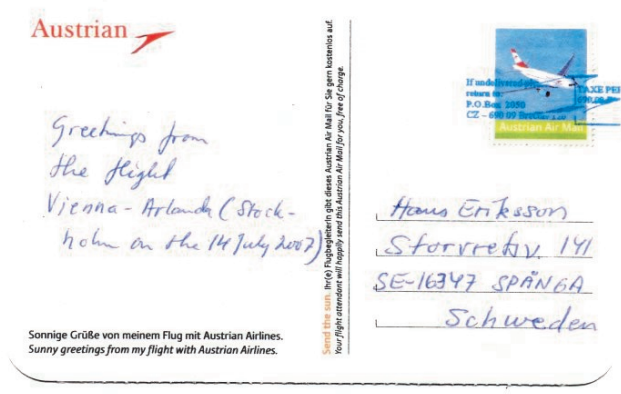 Austrian
Greetings from
the flight
Vienna - Arlanda (Stock-
holm on the 14 July 2007)
Sonnige Grüße von meinem Flug mit Austrian Airlines.
Sunny greetings from my flight with Austrian Airlines.
Send the sun. Ihr(e) FlugbegleiterIn gibt dieses Austrian Air Mail für Sie gern kostenlos auf.
Your flight attendant will happily send this Austrian Air Mail for you, free of charge.
If undelivered
return to:
P.O.Box 2050
CZ - 690 09
TAXE PER
Austrian Air Mail
Hans Eriksson
Storvretsv. 141
SE-16347 SPÅNGA
Schweden